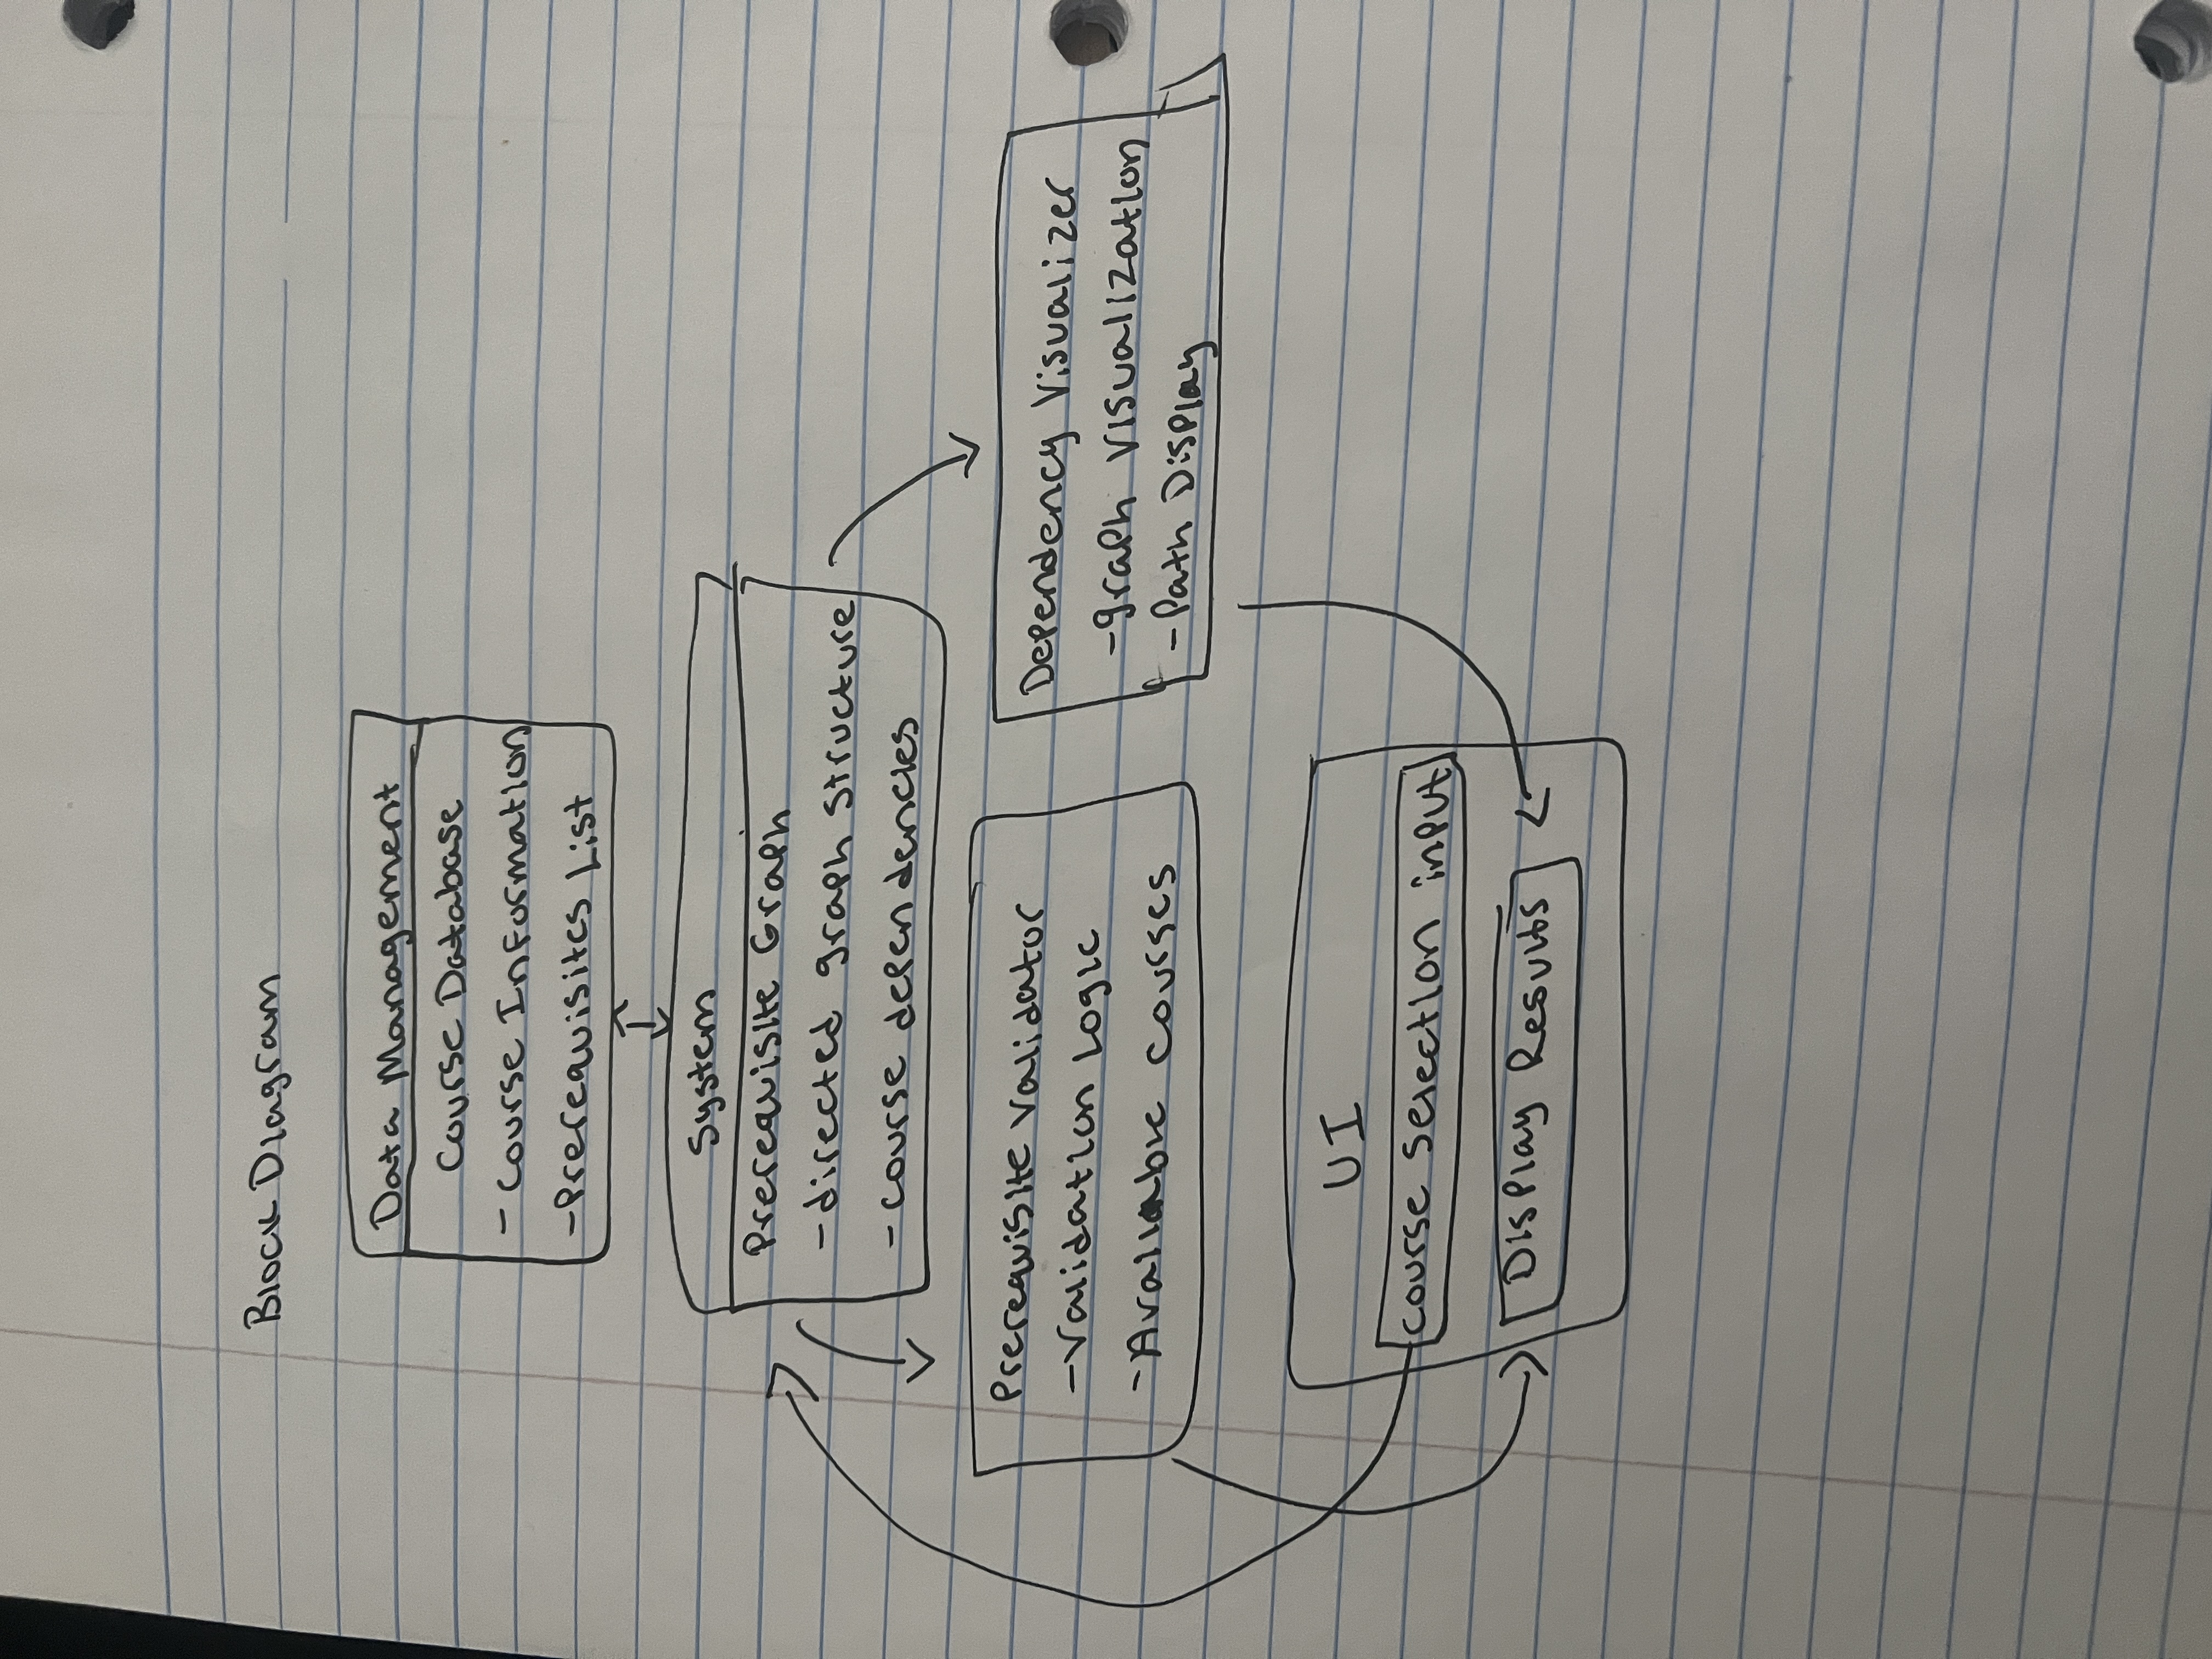 Block Diagram
Data Management
Course Database
- Course Information
- Prerequisites List
System
Prerequisite Graph
- directed graph structure
- course dependencies
Prerequisite Validator
- Validation Logic
- Available courses
Dependency Visualizer
- graph visualization
- Path Display
UI
course selection input
Display Results